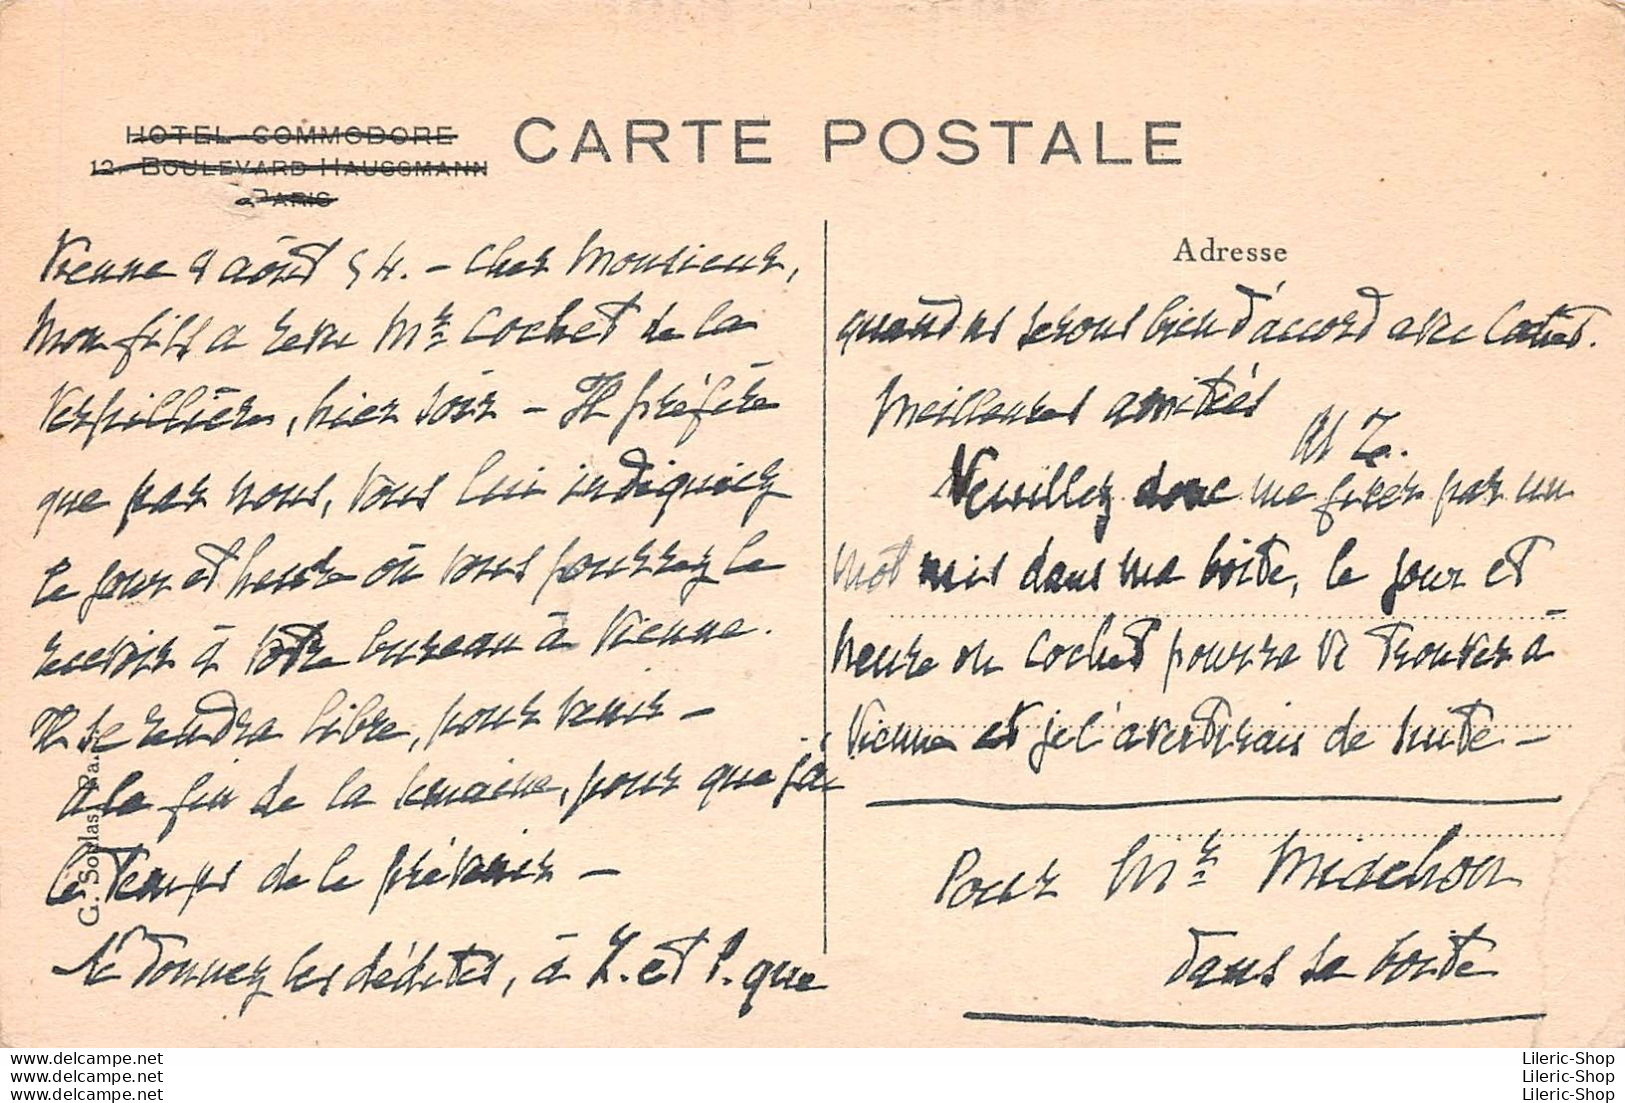 HOTEL COMMODORE
12, BOULEVARD HAUSSMANN
PARIS
CARTE POSTALE
Vienne 9 août 54. - Cher Monsieur,
Mon fils a revu Mr Cochet de la
Verpillière, hier soir - Il préfère
que par nous, vous lui indiquiez
le jour et heure où vous pourrez le
recevoir à votre bureau à Vienne.
Il se rendra libre, pour venir -
à la fin de la semaine, pour que j'ai
le temps de le prévenir -
Ne donnez les dédites, à Z. et P. que
G. Soulas Pa
Adresse
quand ns serons bien d'accord avec Cochet.
Meilleures amitiés
M Z.
Veuillez donc me fixer par un
mot mis dans ma boite, le jour et
heure ou Cochet pourra vs trouver à
Vienne et je l'avertirais de suite -
Pour Mr Midchon
dans sa boite
Lileric-Shop
Lileric-Shop
Lileric-Shop
www.delcampe.net
www.delcampe.net
www.delcampe.net